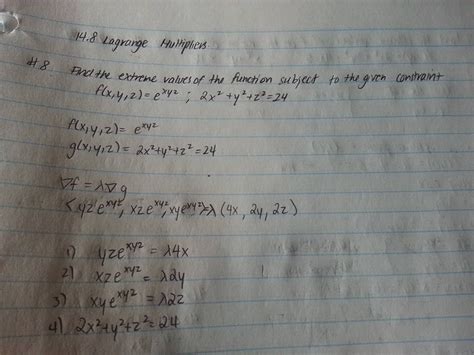 14.8 Lagrange Multipliers
#8 Find the extreme values of the function subject to the given constraint
f(x,y,z) = e^xyz ; 2x²+y²+z²=24
f(x,y,z) = e^xyz
g(x,y,z) = 2x²+y²+z²=24
∇f = λ∇g
<yze^xyz, xze^xyz, xye^xyz>=λ(4x, 2y, 2z)
1) yze^xyz = λ4x
2) xze^xyz = λ2y
3) xye^xyz = λ2z
4) 2x²+y²+z²=24